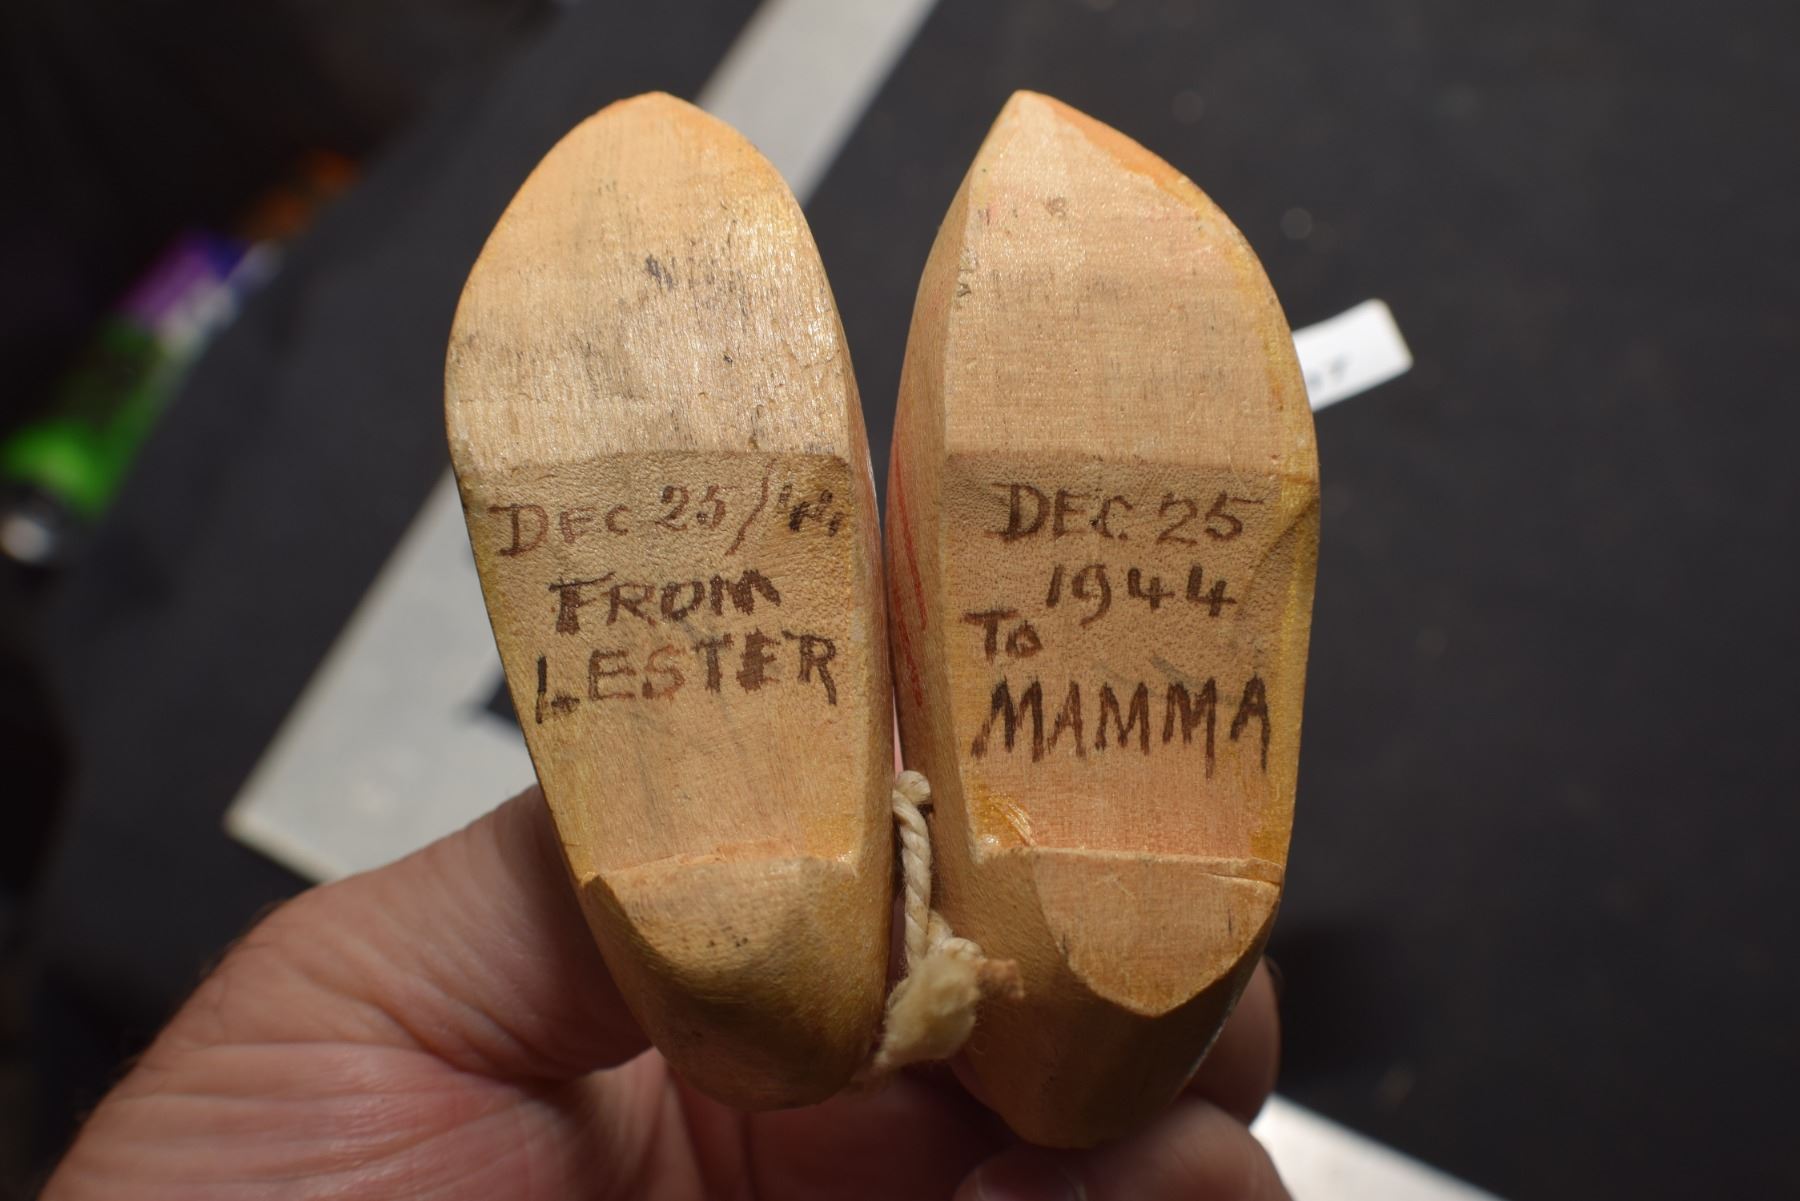 DEC 25/44
FROM
LESTER
DEC. 25
1944
TO
MAMMA